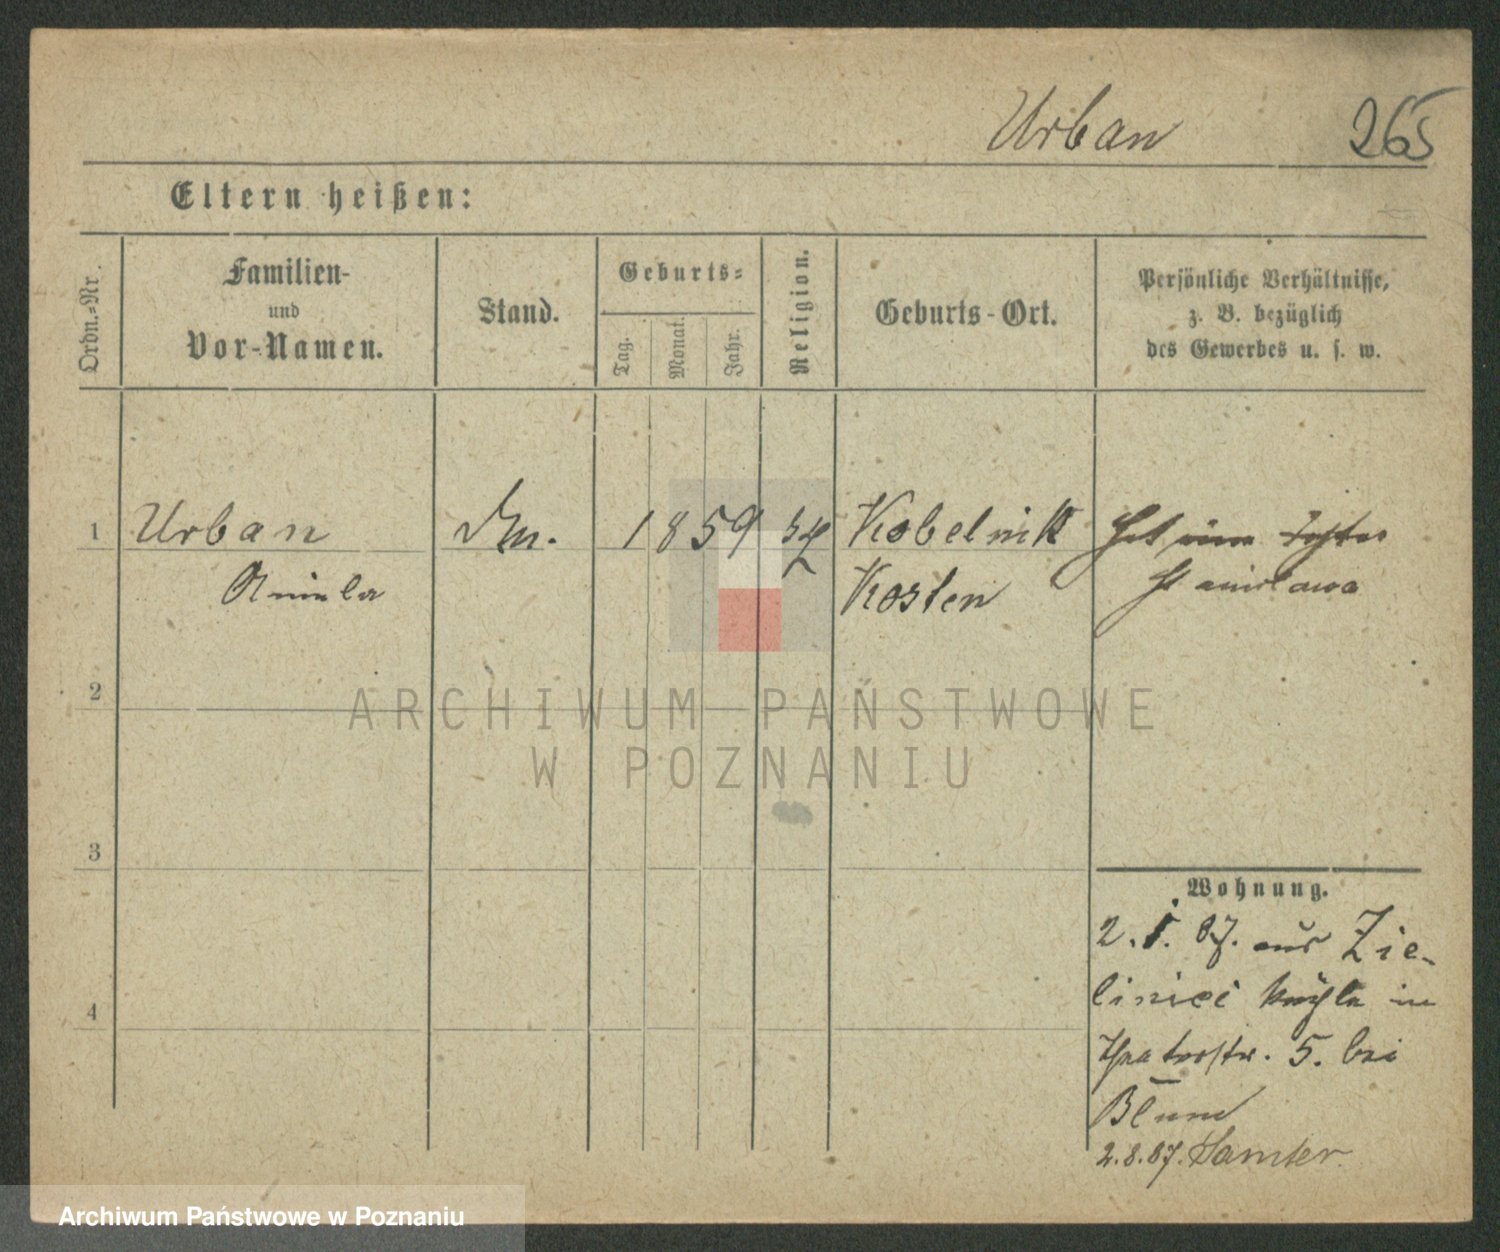 Urban 265
Eltern heißen:
Ordn.-Nr.
Familien-
und
Vor-Namen.
Stand.
Geburts-
Tag.
Monat.
Jahr.
Religion.
Geburts-Ort.
Persönliche Verhältnisse,
z. B. bezüglich
des Gewerbes u. s. w.
1 Urban 1859 Kobelnik
Aniela Kosten
Stanislawa
2
3
4
Wohnung.
2. 87. aus Zie-
linici in
Theaterstr. 5. bei
Blum
2.8.87. Samter
ARCHIWUM PAŃSTWOWE
W POZNANIU
Archiwum Państwowe w Poznaniu